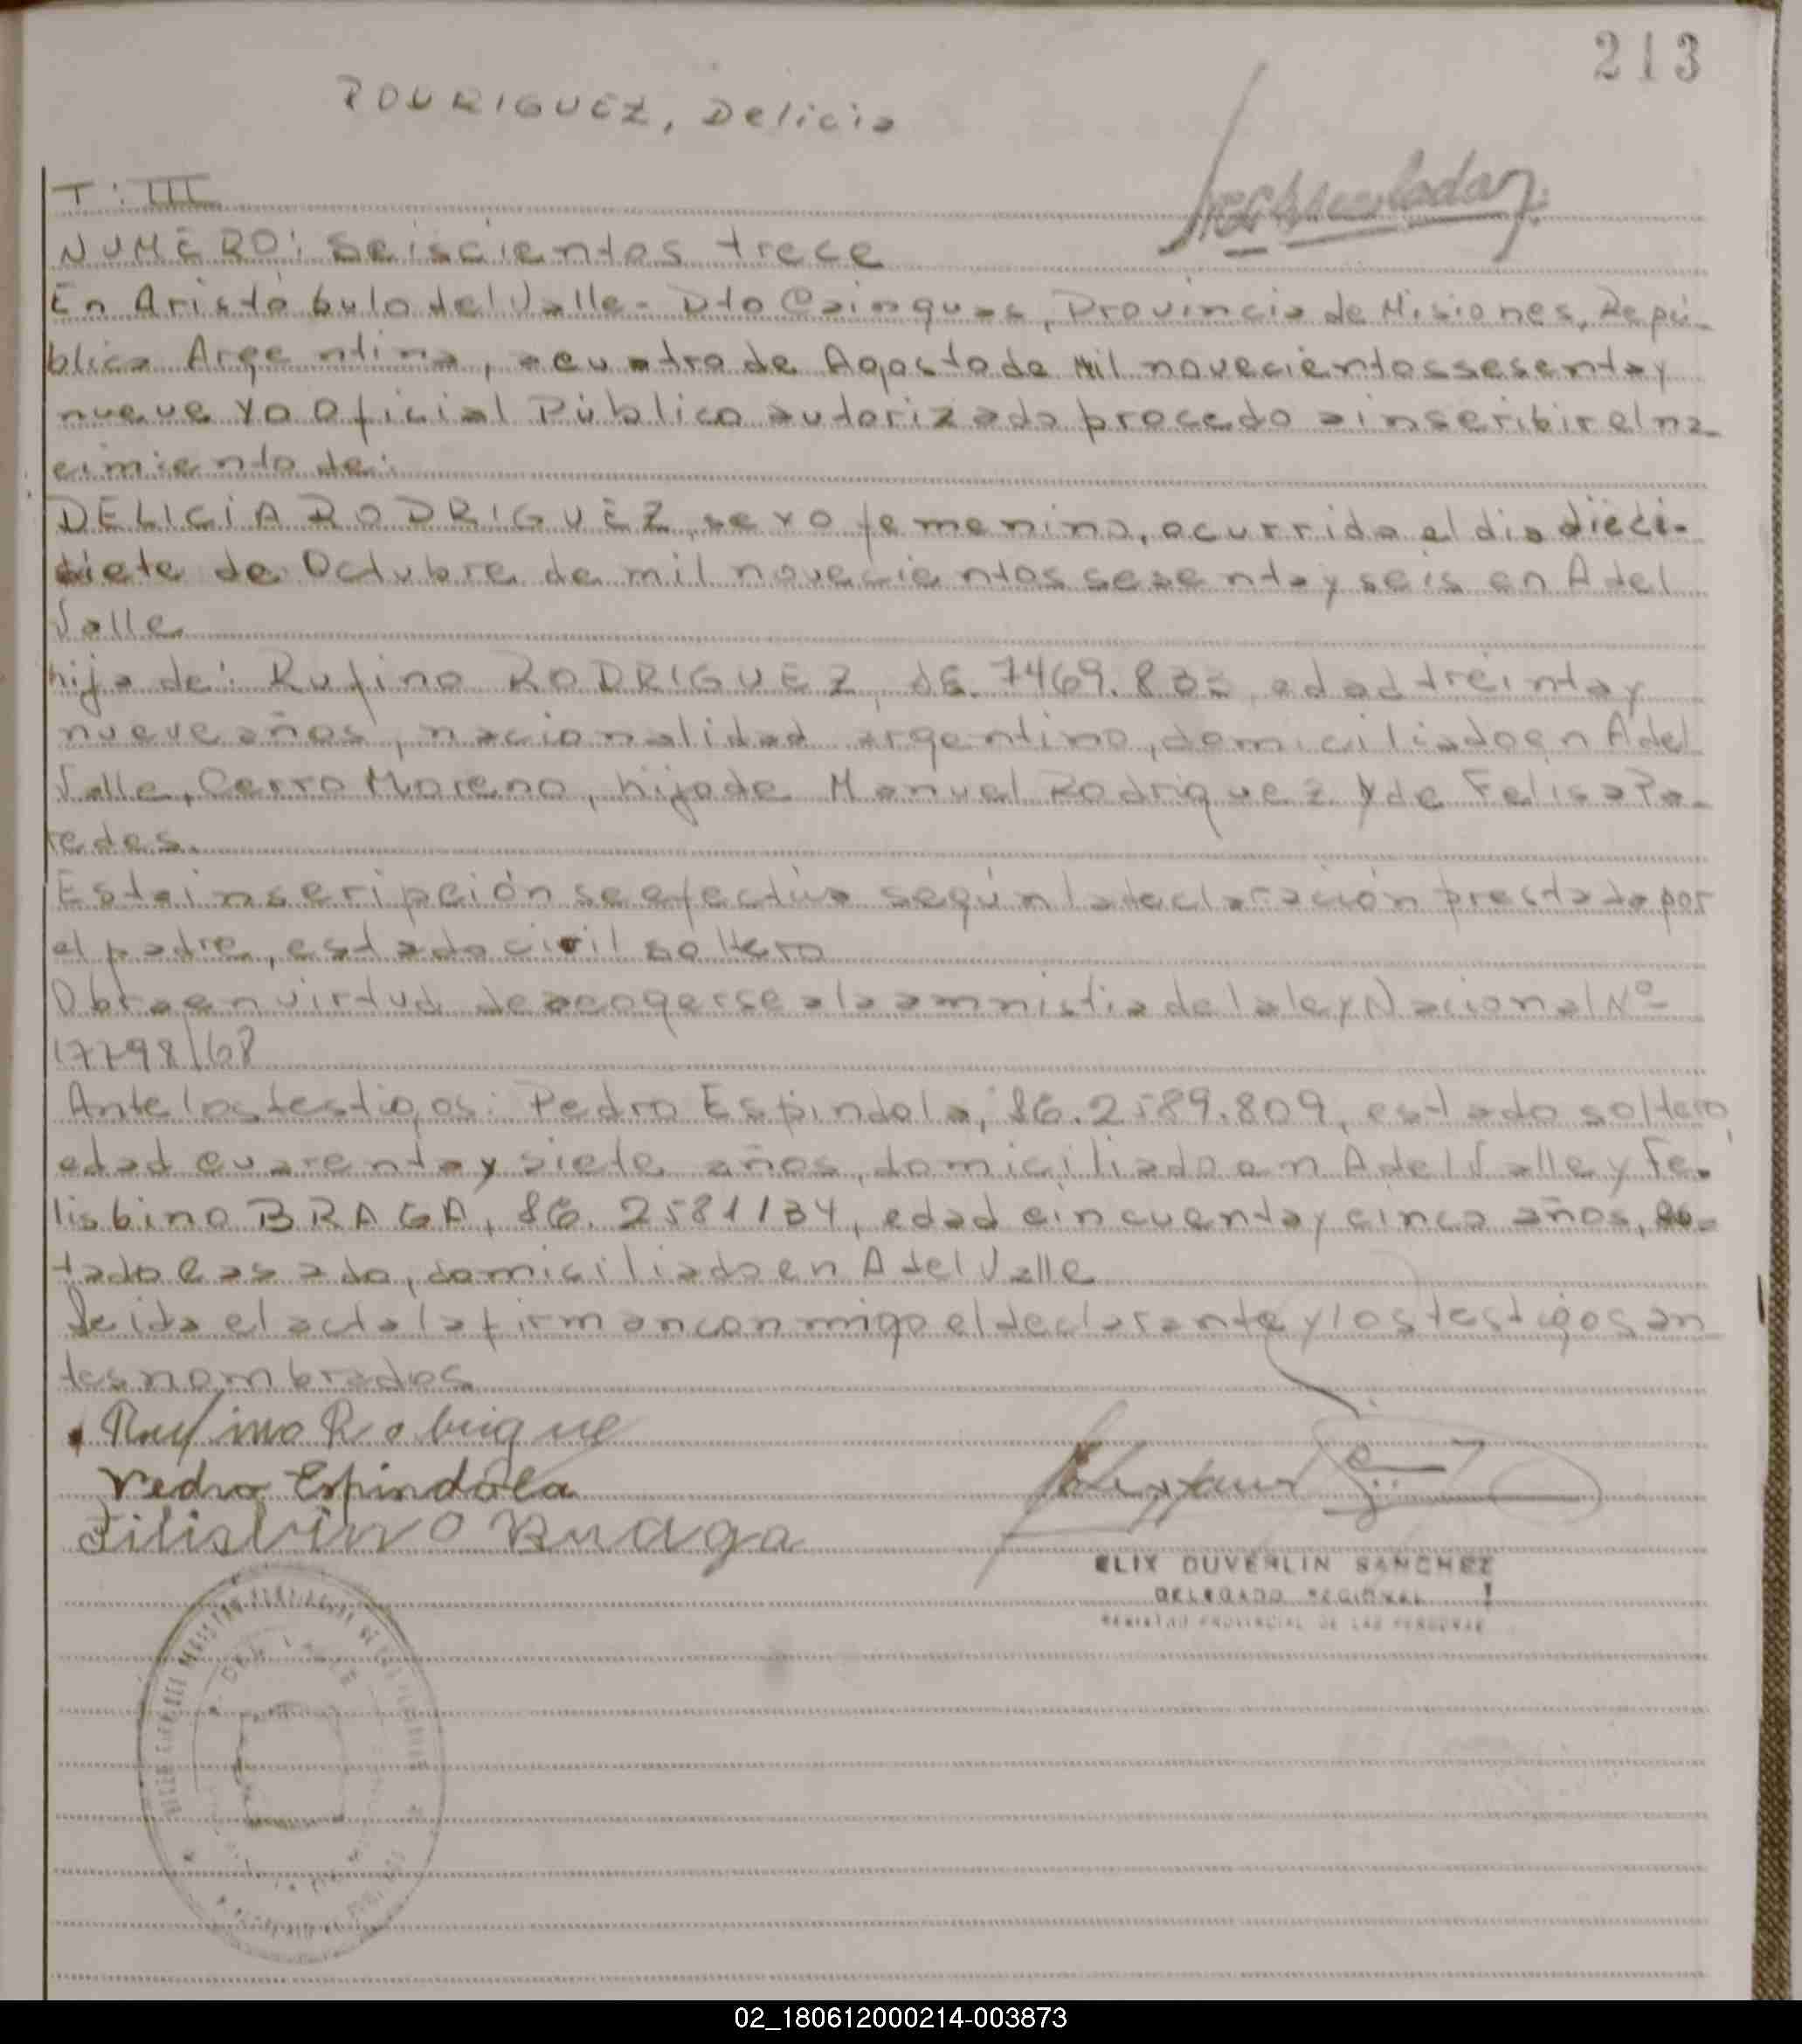 213
RODRIGUEZ, Delicia
T: III
NUMERO: Seiscientos trece
En Aristóbulo del Valle - Dto Cainguas, Provincia de Misiones, Repú-
blica Argentina, a cuatro de Agosto de Mil novecientos sesenta y
nueve yo Oficial Público autorizado procedo a inscribir el na
cimiento de:
DELICIA RODRIGUEZ, sexo femenino, ocurrido el dia dieci-
siete de Octubre de mil novecientos sesenta y seis en A del
Valle
hija de: Rufino RODRIGUEZ, 7469.83 edad treinta y
nueve años, nacionalidad argentino, domiciliado en A del
Valle, Cerro Moreno, hijo de Manuel Rodriguez y de Felisa Pa-
redes.
Esta inscripción se efectúa según la declaración prestada por
el padre, estado civil soltero
Obra en virtud de acogerse a la amnistia de la ley Nacional Nº
17798/68
Ante los testigos: Pedro Espindola, 2589.809, estado soltero,
edad cuarenta y siete años, domiciliado en A del Valle y Fe-
lisbino BRAGA, 2581134, edad cincuenta y cinco años, es-
tado casado, domiciliado en A del Valle
Leida el acta la firman conmigo el declarante y los testigos an
tes nombrados
Rufino Robrigue
Pedro Espindola
Filisbino Braga
ELIX DUVERLIN SANCHEZ
DELEGADO REGIONAL
REGISTRO PROVINCIAL DE LAS PERSONAS
02_180612000214-003873